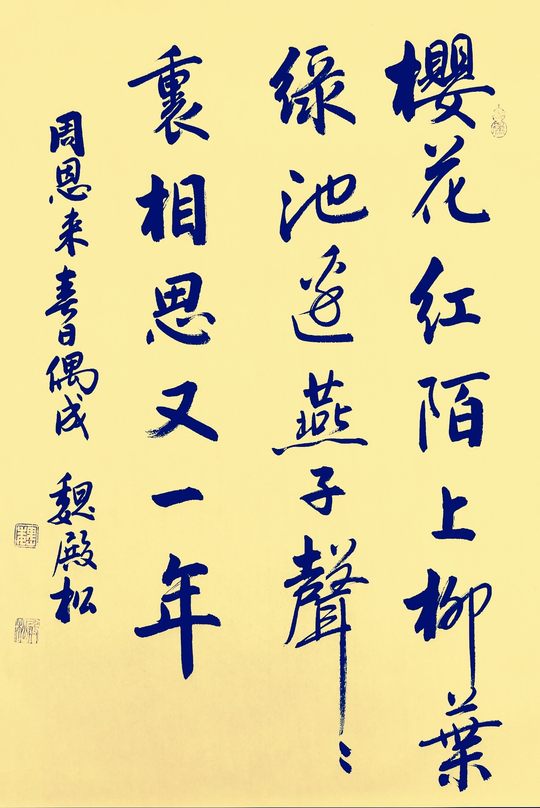 櫻花红陌上柳葉
綠池邊燕子聲〻
裏相思又一年
周恩来春日偶成 魏殿松